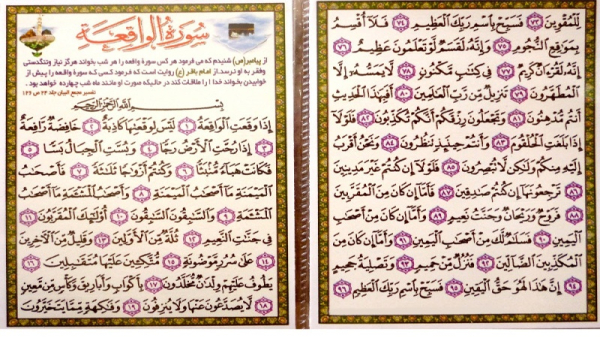 سُورَةُ الواقِعَة
از پیامبر(ص) شنیدم که می فرمود هر کس سورهٔ واقعه را هر شب بخواند هرگز نیاز وتنگدستی
وفقر به او نرسد. از امام باقر (ع) روایت است که فرمود کسی که سورهٔ واقعه را پیش از
خوابیدن بخواند خدا را ملاقات کند در حالیکه صورت او مانند ماه شب چهارده خواهد بود.
تفسیر مجمع البیان جلد ۲۴ ص ۱۲۶
بِسْمِ اللَّهِ الرَّحْمَٰنِ الرَّحِيمِ
إِذَا وَقَعَتِ الْوَاقِعَةُ ۱ لَيْسَ لِوَقْعَتِهَا كَاذِبَةٌ ۲ خَافِضَةٌ رَافِعَةٌ
۳ إِذَا رُجَّتِ الْأَرْضُ رَجًّا ۴ وَبُسَّتِ الْجِبَالُ بَسًّا ۵
فَكَانَتْ هَبَاءً مُنْبَثًّا ۶ وَكُنْتُمْ أَزْوَاجًا ثَلَاثَةً ۷ فَأَصْحَابُ
الْمَيْمَنَةِ مَا أَصْحَابُ الْمَيْمَنَةِ ۸ وَأَصْحَابُ الْمَشْأَمَةِ مَا أَصْحَابُ
الْمَشْأَمَةِ ۹ وَالسَّابِقُونَ السَّابِقُونَ ۱۰ أُولَٰئِكَ الْمُقَرَّبُونَ ۱۱
فِي جَنَّاتِ النَّعِيمِ ۱۲ ثُلَّةٌ مِنَ الْأَوَّلِينَ ۱۳ وَقَلِيلٌ مِنَ الْآخِرِينَ
۱۴ عَلَىٰ سُرُرٍ مَوْضُونَةٍ ۱۵ مُتَّكِئِينَ عَلَيْهَا مُتَقَابِلِينَ ۱۶
يَطُوفُ عَلَيْهِمْ وِلْدَانٌ مُخَلَّدُونَ ۱۷ بِأَكْوَابٍ وَأَبَارِيقَ وَكَأْسٍ مِنْ مَعِينٍ
۱۸ لَا يُصَدَّعُونَ عَنْهَا وَلَا يُنْزِفُونَ ۱۹ وَفَاكِهَةٍ مِمَّا يَتَخَيَّرُونَ
لِلْمُقْوِينَ ۷۳ فَسَبِّحْ بِاسْمِ رَبِّكَ الْعَظِيمِ ۷۴ فَلَا أُقْسِمُ
بِمَوَاقِعِ النُّجُومِ ۷۵ وَإِنَّهُ لَقَسَمٌ لَوْ تَعْلَمُونَ عَظِيمٌ ۷۶
إِنَّهُ لَقُرْآنٌ كَرِيمٌ ۷۷ فِي كِتَابٍ مَكْنُونٍ ۷۸ لَا يَمَسُّهُ إِلَّا
الْمُطَهَّرُونَ ۷۹ تَنْزِيلٌ مِنْ رَبِّ الْعَالَمِينَ ۸۰ أَفَبِهَٰذَا الْحَدِيثِ
أَنْتُمْ مُدْهِنُونَ ۸۱ وَتَجْعَلُونَ رِزْقَكُمْ أَنَّكُمْ تُكَذِّبُونَ ۸۲ فَلَوْلَا
إِذَا بَلَغَتِ الْحُلْقُومَ ۸۳ وَأَنْتُمْ حِينَئِذٍ تَنْظُرُونَ ۸۴ وَنَحْنُ أَقْرَبُ
إِلَيْهِ مِنْكُمْ وَلَٰكِنْ لَا تُبْصِرُونَ ۸۵ فَلَوْلَا إِنْ كُنْتُمْ غَيْرَ مَدِينِينَ
۸۶ تَرْجِعُونَهَا إِنْ كُنْتُمْ صَادِقِينَ ۸۷ فَأَمَّا إِنْ كَانَ مِنَ الْمُقَرَّبِينَ
۸۸ فَرَوْحٌ وَرَيْحَانٌ وَجَنَّتُ نَعِيمٍ ۸۹ وَأَمَّا إِنْ كَانَ مِنْ أَصْحَابِ
الْيَمِينِ ۹۰ فَسَلَامٌ لَكَ مِنْ أَصْحَابِ الْيَمِينِ ۹۱ وَأَمَّا إِنْ كَانَ مِنَ
الْمُكَذِّبِينَ الضَّالِّينَ ۹۲ فَنُزُلٌ مِنْ حَمِيمٍ ۹۳ وَتَصْلِيَةُ جَحِيمٍ
۹۴ إِنَّ هَٰذَا لَهُوَ حَقُّ الْيَقِينِ ۹۵ فَسَبِّحْ بِاسْمِ رَبِّكَ الْعَظِيمِ ۹۶